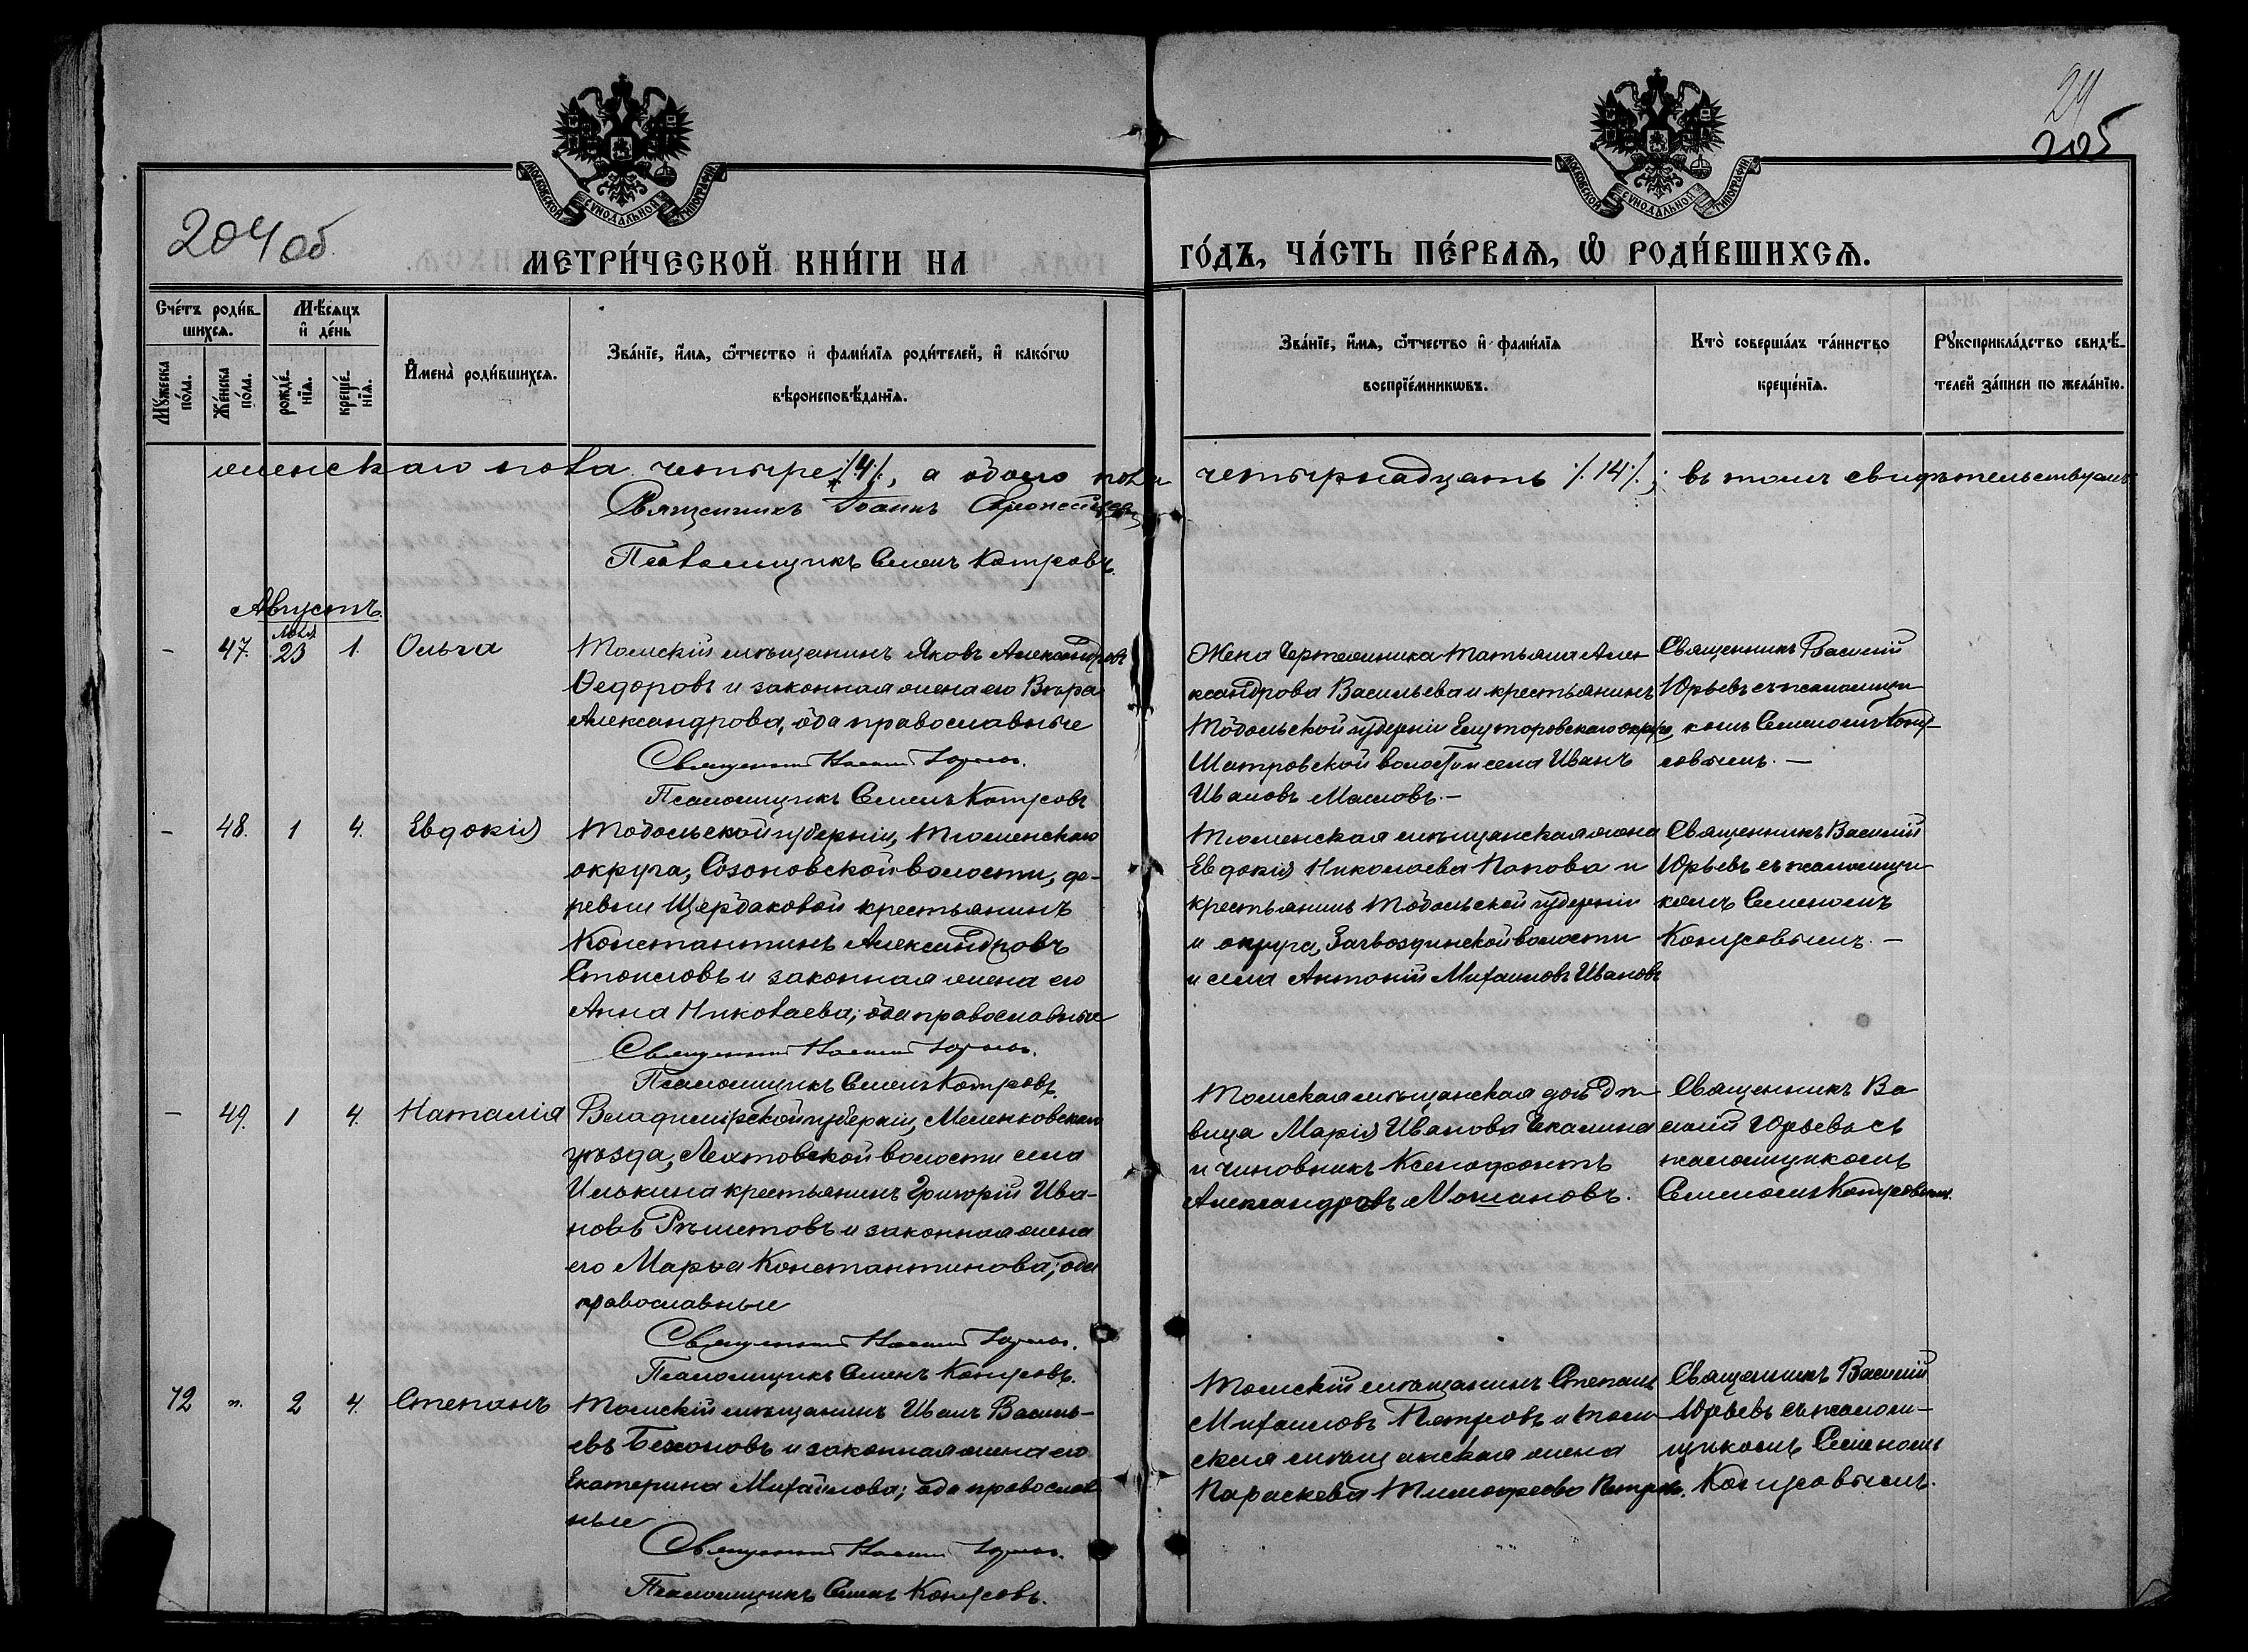 204 об
24
205
МОСКОВСКОЙ СѴНОДАЛЬНОЙ ТИПОГРАФІИ
МОСКОВСКОЙ СѴНОДАЛЬНОЙ ТИПОГРАФІИ
МЕТРИ́ЧЕСКОЙ КНИ́ГИ НА
ГО́ДЪ, ЧА́СТЬ ПЕ́РВАѦ, Ѡ҆ РОДИ́ВШИХСѦ.
Сче́тъ роди́в-
шихсѧ.
Мꙋ́жеска по́ла.
Же́нска по́ла.
Мѣ́сѧцъ
и҆ де́нь
рожде́-
нїѧ.
креще́-
нїѧ.
И҆мена̀ роди́вшихсѧ.
Зва́нїе, и҆́мѧ, ѻ҆́тчество и҆ фами́лїѧ роди́телей, и҆ како́гѡ
вѣроисповѣ́данїѧ.
Зва́нїе, и҆́мѧ, ѻ҆́тчество и҆ фами́лїѧ
воспрїе́мникѡвъ.
Кто̀ соверша́лъ та́инство
креще́нїѧ.
Рꙋкоприкла́дство свидѣ́-
телей за́писи по жела́нїю.
женскаго пола четыре /:4:/, а обоего пола четырнадцать /:14:/; въ томъ свидѣтельствуемъ
Священникъ Іоаннъ
Псаломщикъ Семенъ
Августъ.
— 47. Іюля 23 1. Ольга
Томскій мѣщанинъ Яковъ Александровъ
Ѳедоровъ и законная жена его Вѣра
Александрова, оба православные
Священникъ Василій Юрьевъ.
Псаломщикъ Семенъ
Жена Чертежника Татьяна Але-
ксандрова Васильева и крестьянинъ
Тобольской губерніи Ялуторовскаго округа,
Шатровской волости и села Иванъ
Ивановъ Масловъ. —
Священникъ Василій
Юрьевъ съ псаломщи-
комъ Семеномъ
— 48. 1 4. Евдокія
Тобольской губерніи, Тюменскаго
округа, Созоновской волости, де-
ревни Щербаковой крестьянинъ
Константинъ Александровъ
и законная жена его
Анна Николаева; оба православные
Священникъ Василій Юрьевъ.
Псаломщикъ Семенъ
Тюменская мѣщанская жена
Евдокія Николаева Попова и
крестьянинъ Тобольской губерніи
и округа, Загвоздинской волости
и села Антоній Михаиловъ Ивановъ
Священникъ Василій
Юрьевъ съ псаломщи-
комъ Семеномъ
— 49. 1 4. Наталія
Владимірской губерніи, Меленковскаго
уѣзда, Ляховской волости села
Илькина крестьянинъ Григорій Ива-
новъ Рѣшетовъ и законная жена
его Марѳа Константинова; оба
православные
Священникъ Василій Юрьевъ.
Псаломщикъ Семенъ
Томская мѣщанская дочь дѣ-
вица Марія Иванова Чекалина
и чиновникъ Ксенофонтъ
Александровъ
Священникъ Ва-
силій Юрьевъ съ
псаломщикомъ
Семеномъ
72 — 2 4. Степанъ
Томскій мѣщанинъ Иванъ Василь-
евъ и законная жена его
Екатерина Михайлова; оба православ-
ные
Священникъ Василій Юрьевъ.
Псаломщикъ Семенъ
Томскій мѣщанинъ Степанъ
Михаиловъ Петровъ и том-
ская мѣщанская жена
Параскева Тимофеева
Священникъ Василій
Юрьевъ съ псалом-
щикомъ Семеномъ